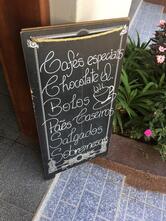 Cafés especiais
Chocolate
Bolos
Pães Caseiros
Salgados
Sobremesas